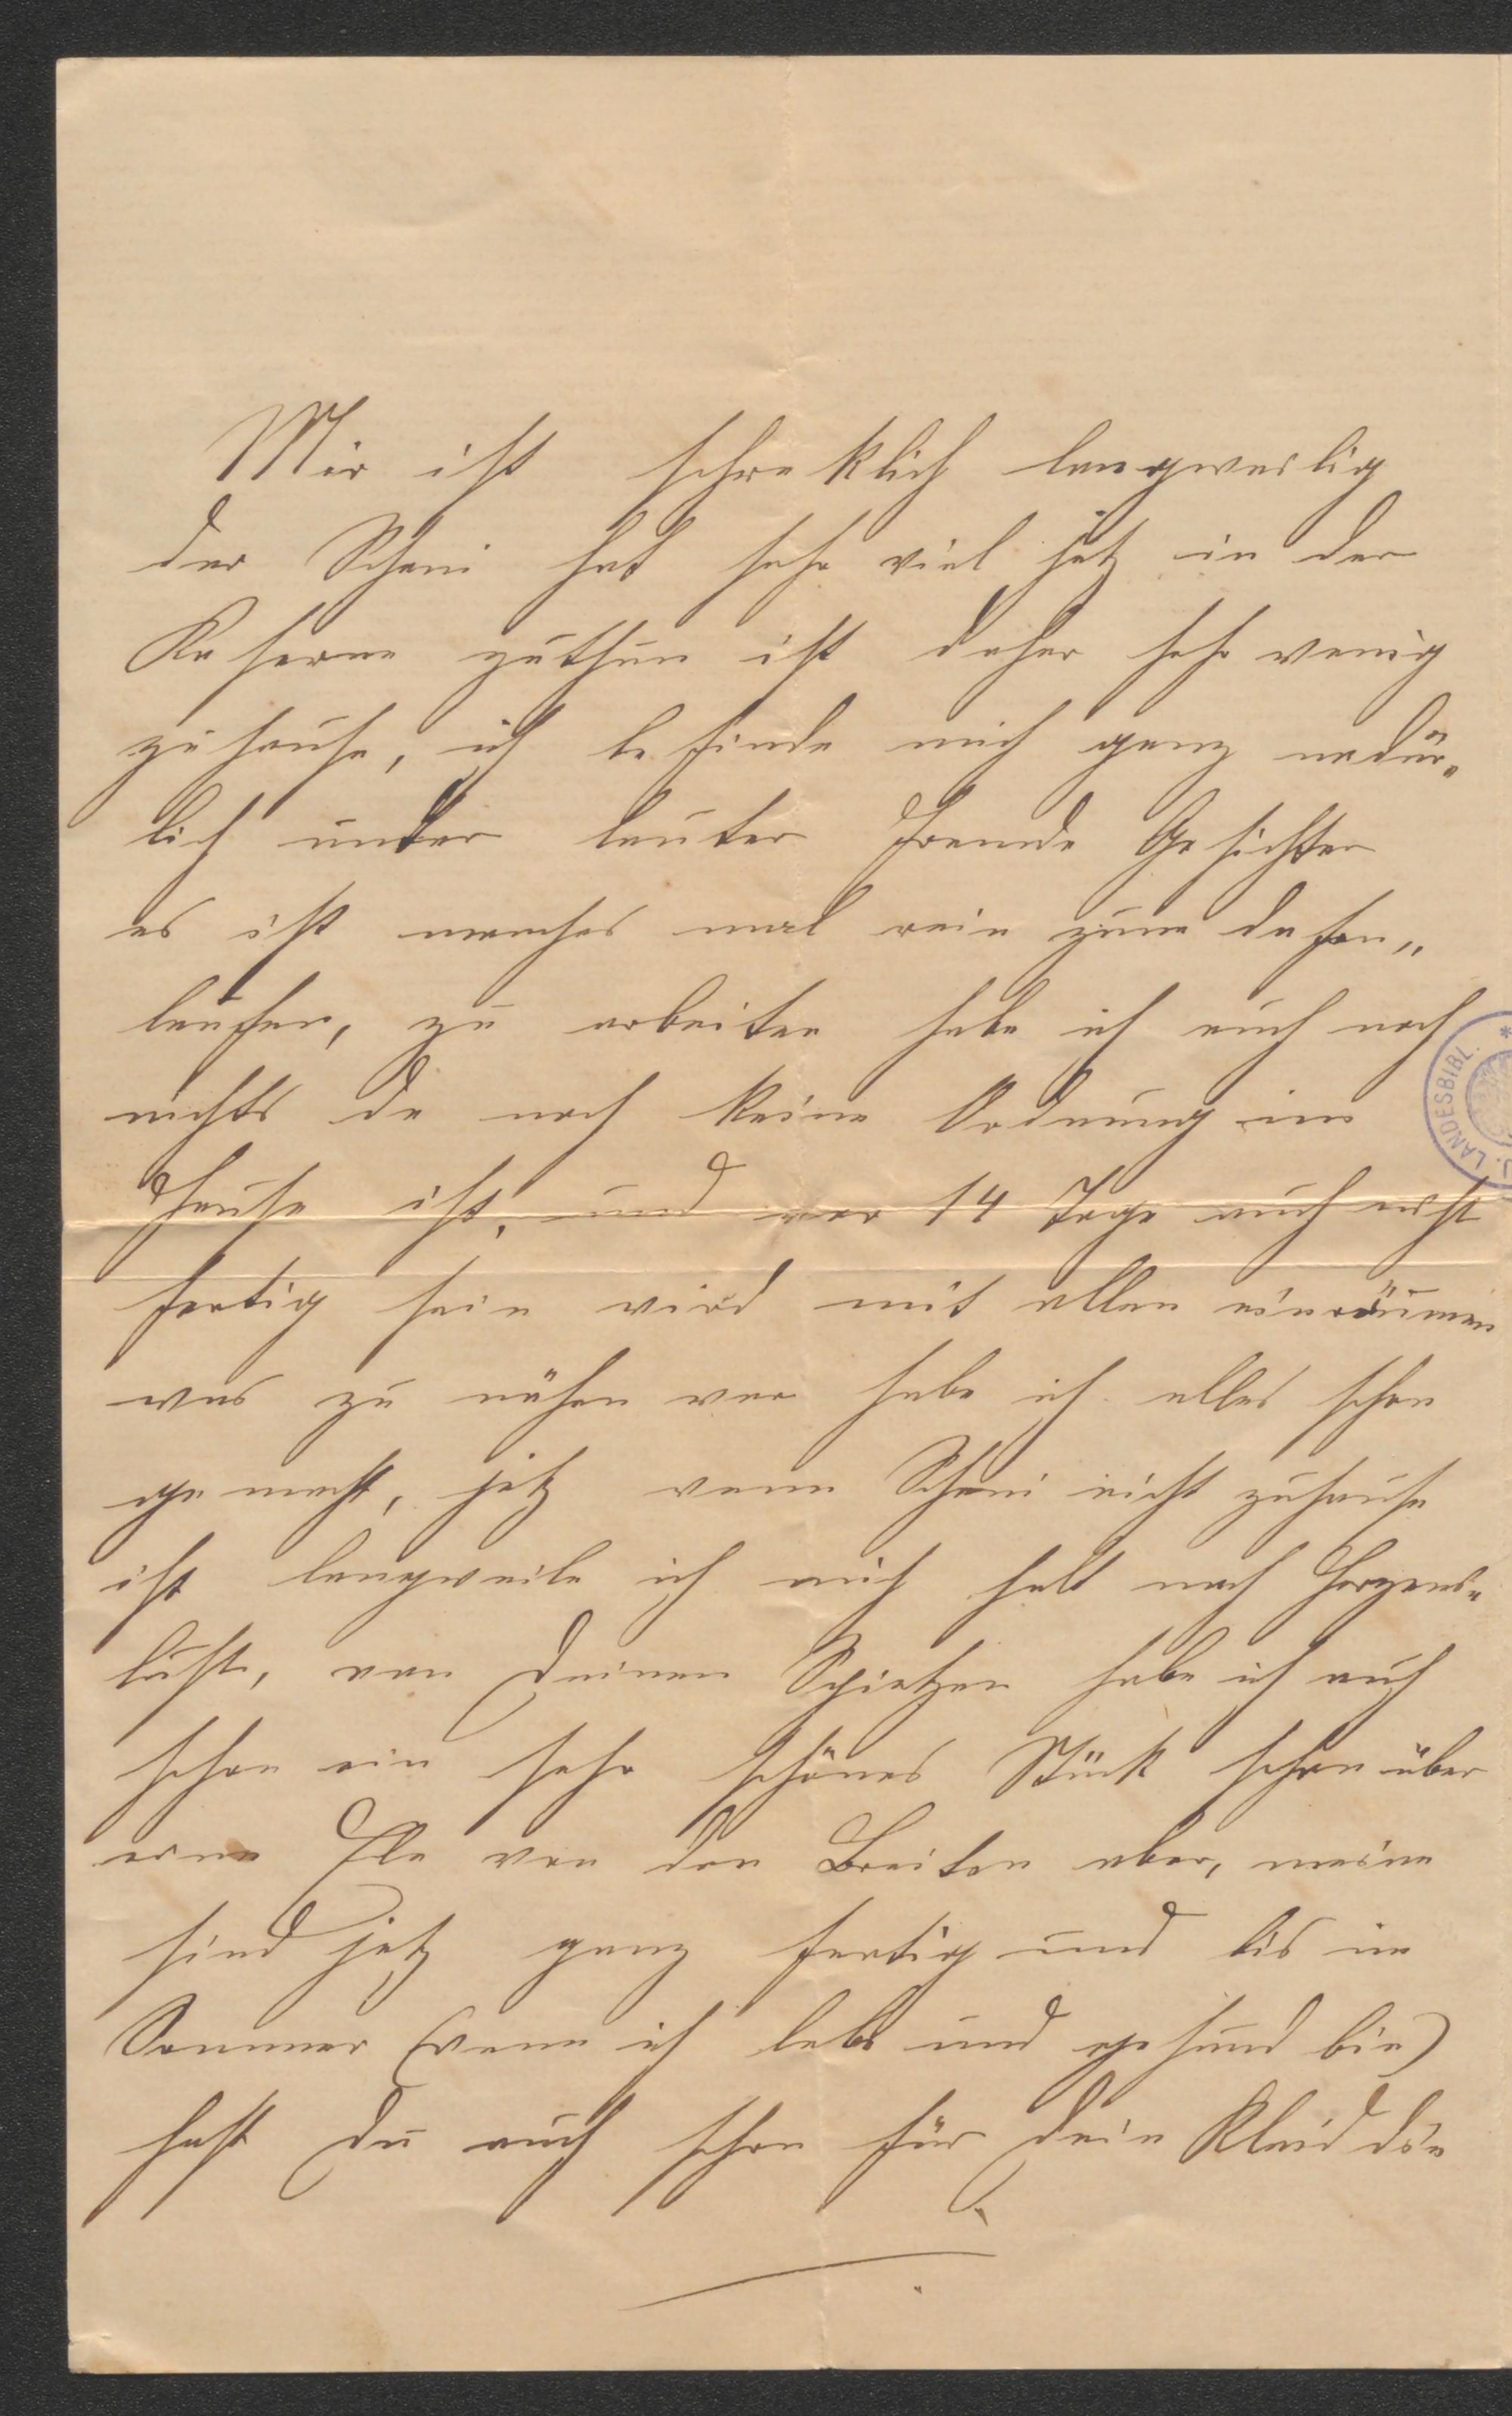 Mir ist schreklich langweilig
der Scheni hat sehr viel jetz in der
Kaserne zuthun ist daher sehr wenig
zuhause, ich befinde mich ganz nadür„
lich unter lauter fremde Gesichter
es ist manches mal rein zum dafon„
laufen, zu arbeiten habe ich auch noch
nichts da noch keine Ordnung im
Hause ist, und vor 14 Tage auch nicht
fertig sein wird mit allen einräumen
was zu nähen war habe ich alles schon
gemacht, jetz wenn Scheni nicht zuhause
ist langweile ich mich halt nach Herzens„
lust, von Deinen Spietzen habe ich auch
schon ein sehr schönes Stück schon über
eine Ele von den Breiten aber, meine
sind jetz ganz fertig und bis im
Sommer (wenn ich lebe und gesund bin)
hast Du auch schon für Dein Kleid die
LANDESBIBL.